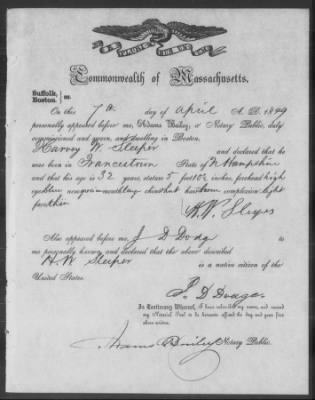 E PLURIBUS UNUM
Commonwealth of Massachusetts.
Suffolk,
Boston. ss.
On this 7th day of April A. D. 1849
personally appeared before me, Adams Bailey, a Notary Public, duly
commissioned and sworn, and dwelling in Boston,
Harvey W. Sleeper and declared that he
was born in Francestown State of N Hampshire
and that his age is 32 years, stature 5 feet 02 inches, forehead high
eyes blue nose mouth chin hair complexion light
face thin
H. W. Sleeper
Also appeared before me J D Dodge to
me personally known, and declared that the above described
H. W Sleeper is a native citizen of the
United States.
J. D Dodge
In Testimony Whereof, I have subscribed my name, and caused
my Notarial Seal to be hereunto affixed the day and year first
above written.
Adams Bailey Notary Public.